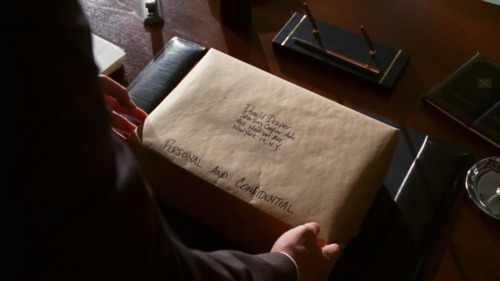 Donald Draper
Sterling Cooper Adv.
405 Madison Ave
New York 17, N.Y.
PERSONAL AND CONFIDENTIAL